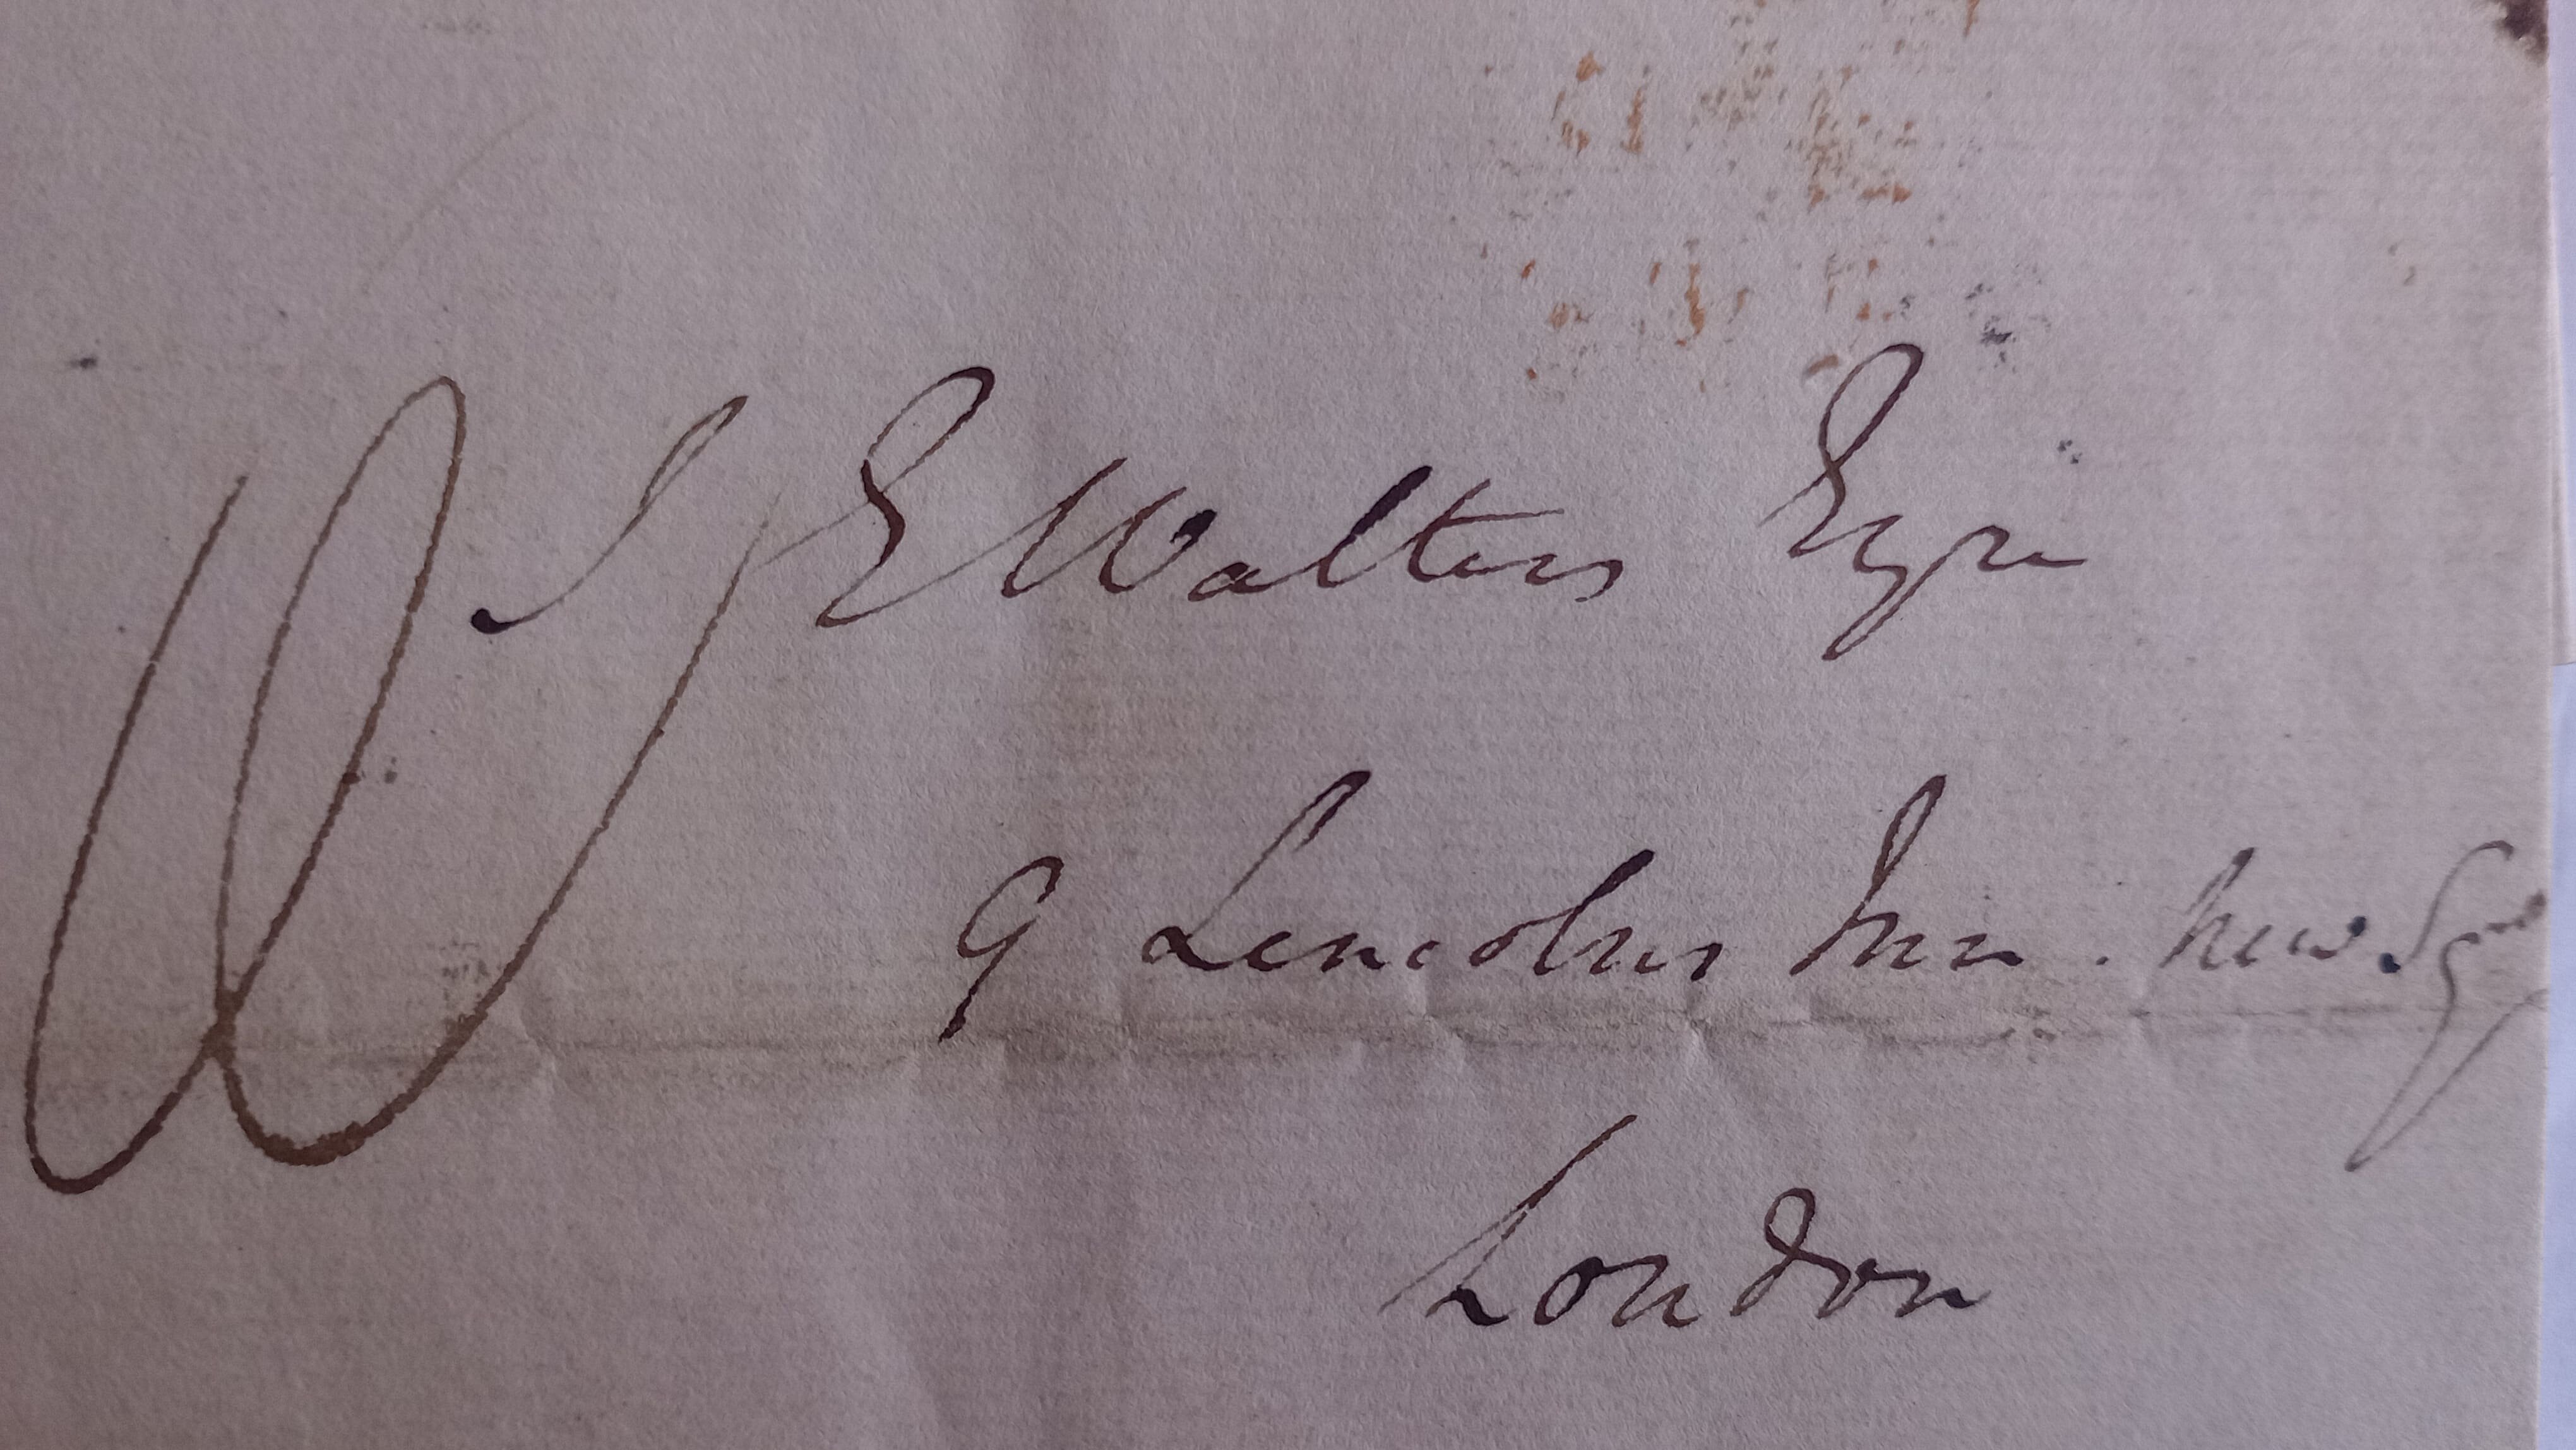 E Walters Esqre
9 Lincolns Inn. New Sq
London